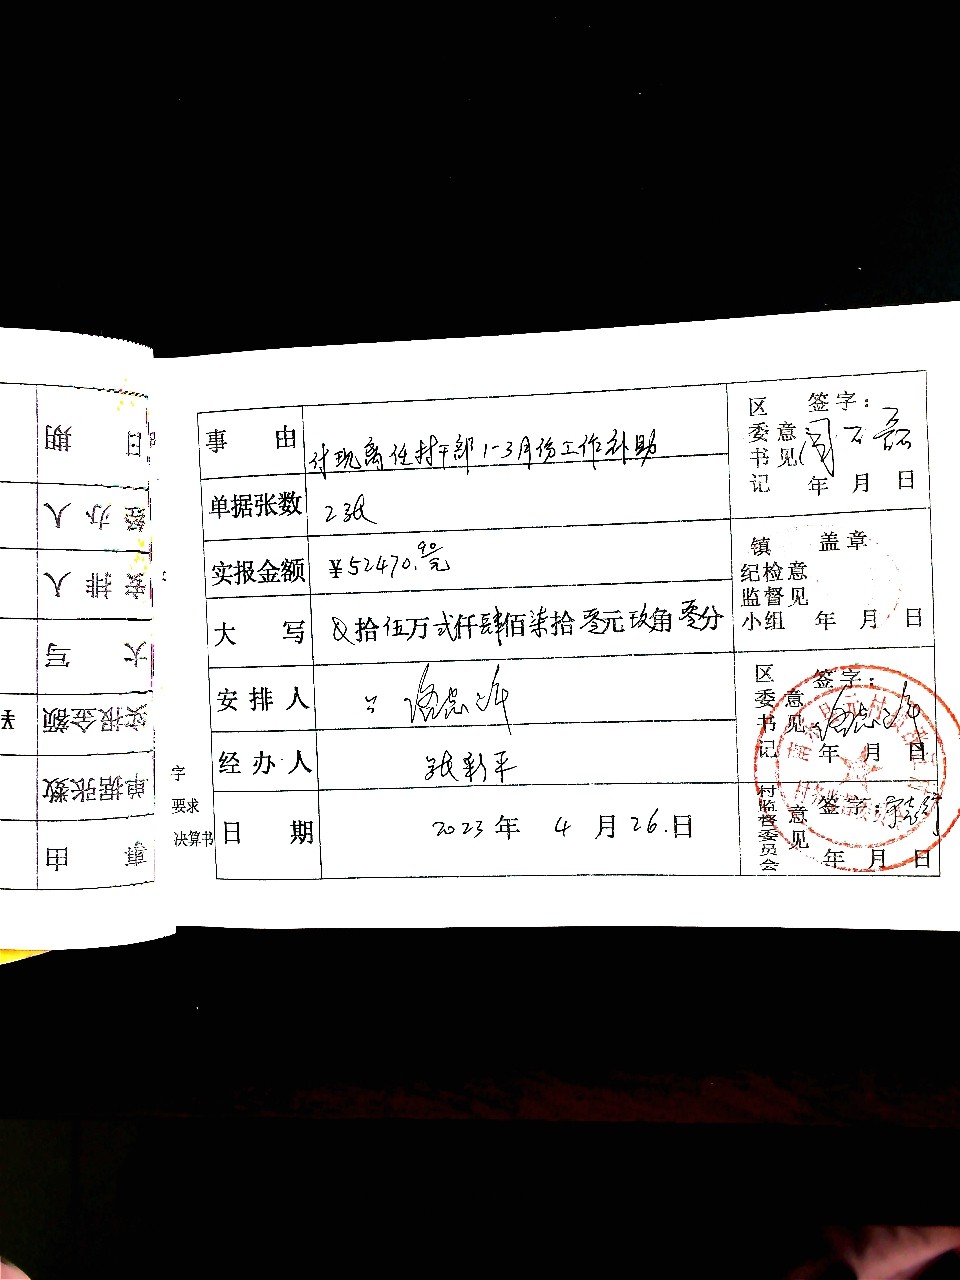 事 由 付现离任村干部1-3月份工作补助
单据张数 2张
实报金额 ¥52470.90元
大 写 拾伍万弍仟肆佰柒拾零元玖角零分
安 排 人
经 办 人 张新平
日 期 2023年 4月26日
区委书记意见 签字：
年 月 日
镇纪检监督小组意见 盖章
年 月 日
区委书记意见 签字：
年 月 日
村监督委员会意见 签字：
年 月 日
字
要求
决算书
日 期
经 办 人
安 排 人
大 写
实报金额 ¥
单据张数
事 由